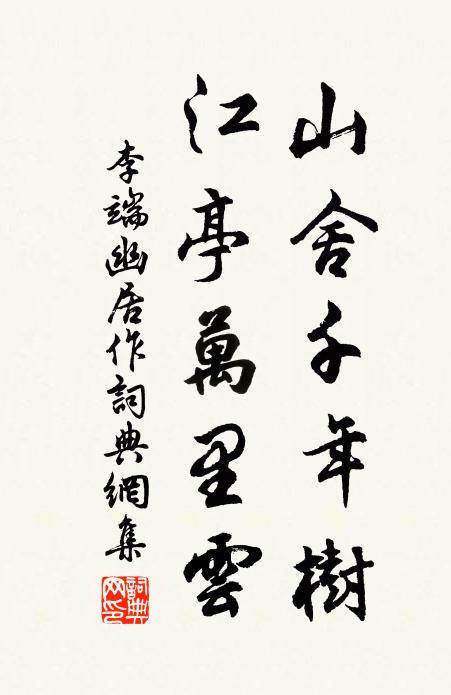 山舍千年樹
江亭萬里雲
李端幽居作詞典網集
詞典網印